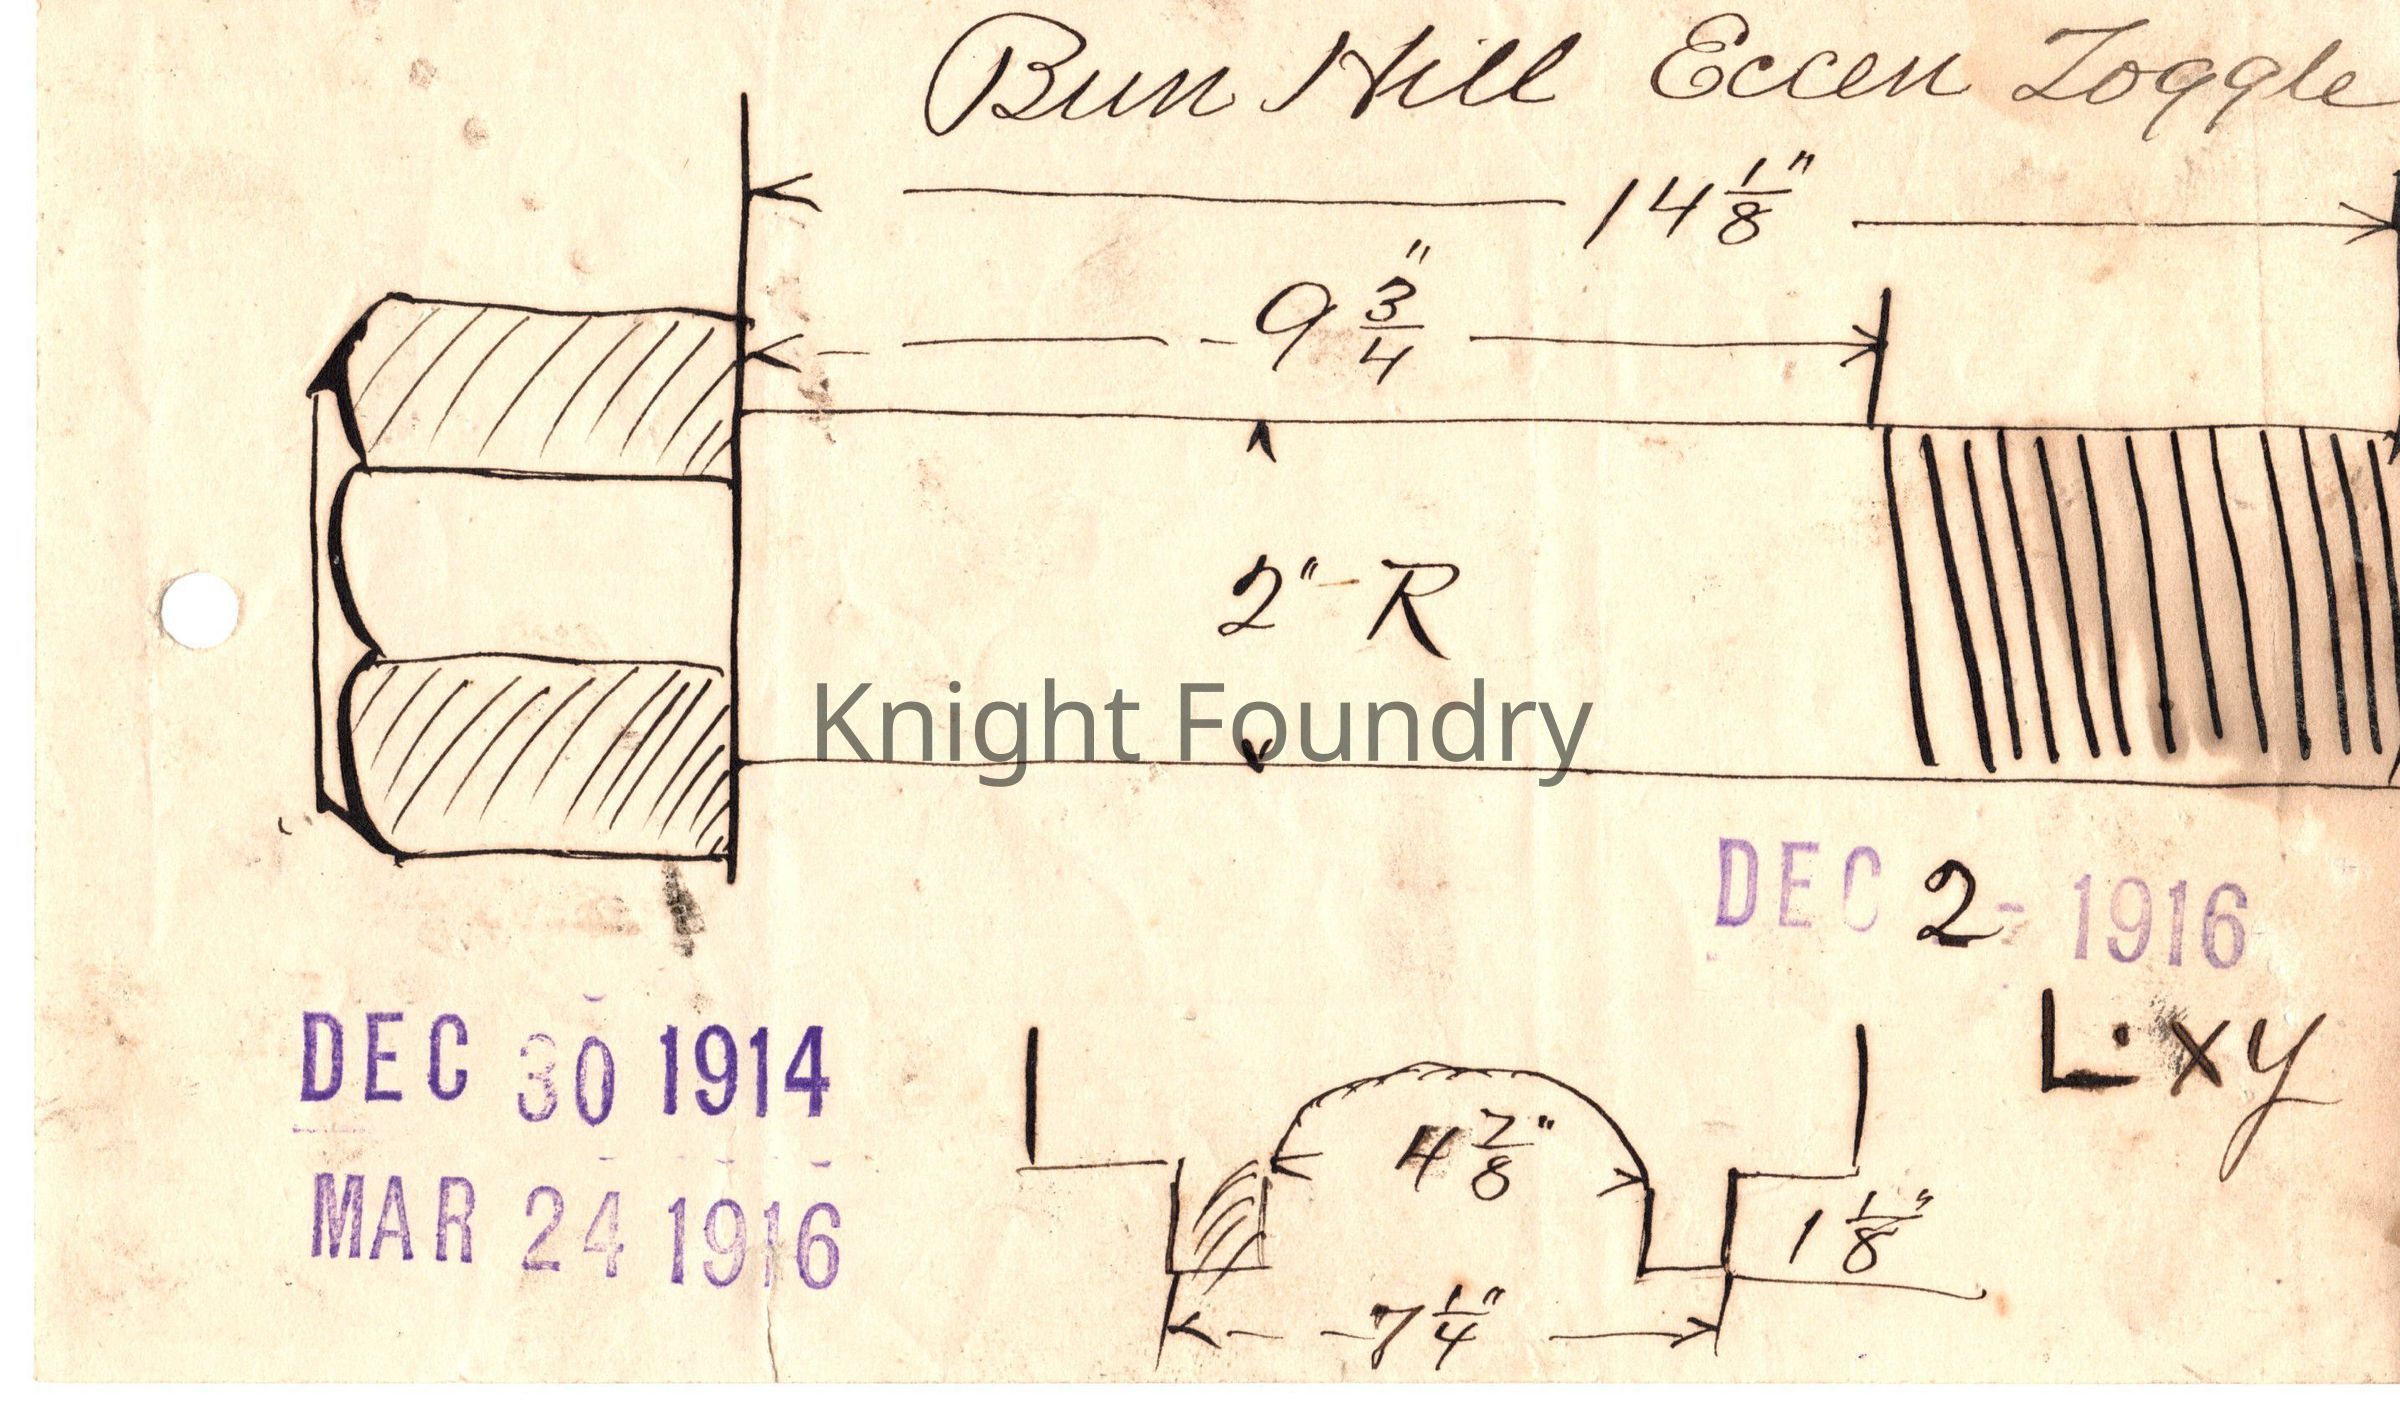 Bun Hill Eccen Toggle
14 1/8"
9 3/4"
2" - R
Knight Foundry
DEC 2 - 1916
L. xy
DEC 30 1914
4 7/8"
MAR 24 1916
1 1/8"
7 1/4"